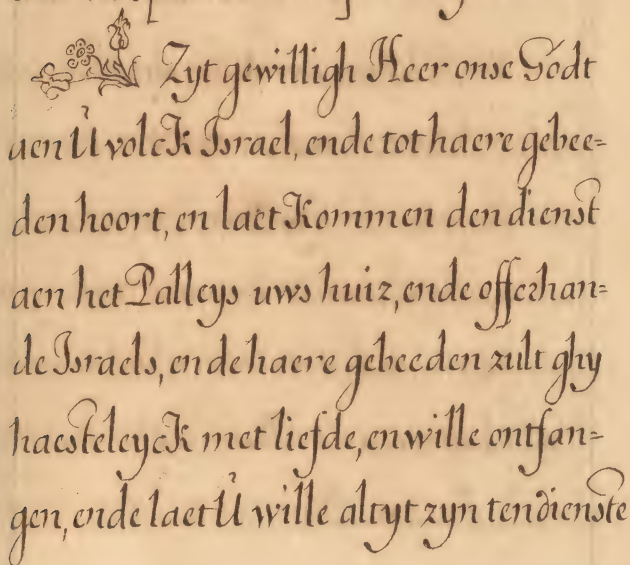 Zyt gewilligh Heer onse Godt
aen Ů volck Israel, ende tot haere gebee=
den hoort, en laet Kommen den dienst
aen het Palleys uws huiz, ende offerhan=
de Israels, ende haere gebeeden zult ghy
haesteleyck met liefde, en wille ontfan=
gen, ende laet Ů wille altyt zyn ten dienste